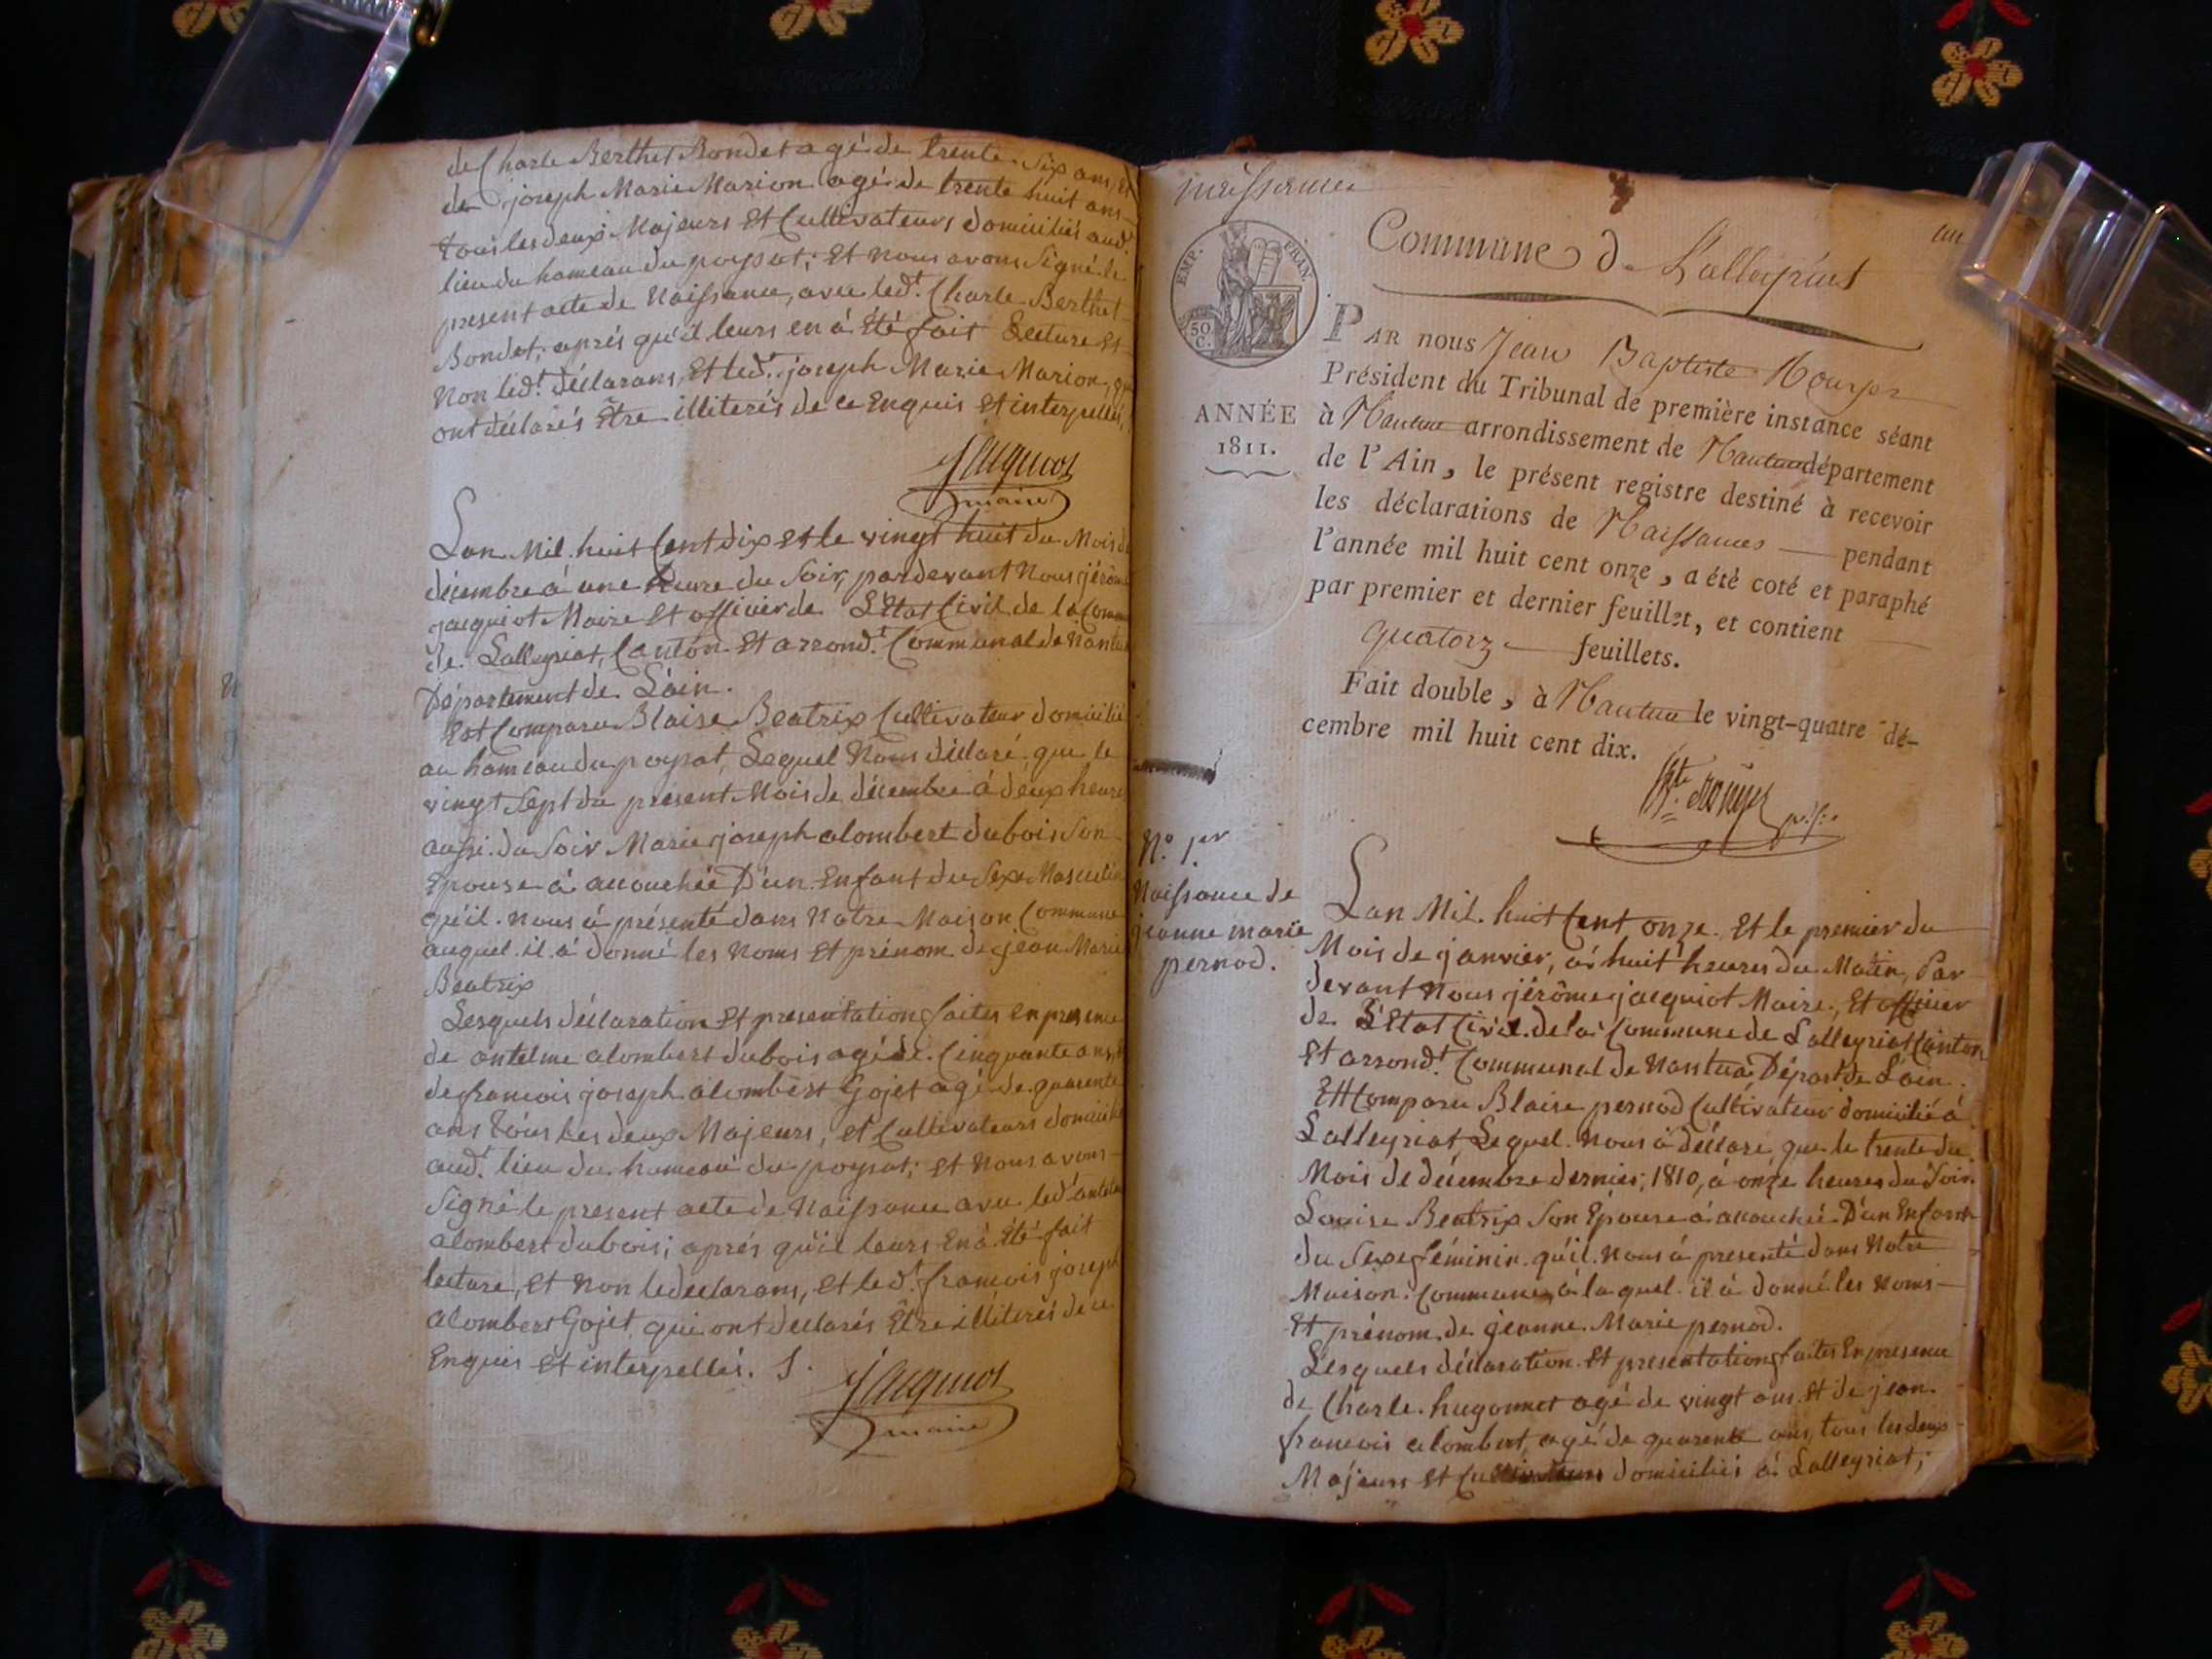 de Charle Berthet Bondet agé de trente six ans, Et
de joseph Marie Marion agé de trente huit ans
tous les deux Majeurs Et Cultivateurs domiciliés aud.t
lieu du hameau du poysat; Et nous avons Signé le
present acte de Naissance, avec led.t Charle Berthet
Bondet; aprés qu'il leurs en à Eté fait Lecture Et
Non led.t déclarans, Et led.t joseph Marie Marion, qui
ont déclarés Être illiterés de ce Enquis Et interpellés,
Jacquiot
maire
Lan Mil huit Cent dix Et le vingt huit du Mois de
décembre à une heure du Soir, pardevant Nous jérôme
jacquiot Maire Et officier de L'Etat Civil de la Commune
de Lalleyriat, Canton Et arrond.t Communal de Nantua
Département de L'ain.
Est Comparu Blaise Beatrix Cultivateur domicilié
au hameau du poysat, Lequel Nous déclaré que le
vingt Sept du présent Mois de décembre à deux heures
aussi du Soir Marie joseph alombert dubois Son
Epouse à accouchée D'un Enfant du Sexe Masculin
qu'il nous à présenté dans Notre Maison Commune
auquel il à donné les Noms Et prénom de jean Marie
Beatrix
Lesquels déclaration Et presentation faites en presence
de antelme alombert dubois agé de Cinquante ans, Et
de francois joseph alombert Gojet agé de quarente
ans tous les deux Majeurs, Et Cultivateurs domiciliés
aud.t lieu du hameau du poysat; Et Nous avons
Signé le present acte de Naissance avec led.t antelme
alombert dubois; aprés qu'il leurs En à Eté fait
lecture, Et Non le declarans, Et led.t francois joseph
alombert Gojet qui ont declarés Être illiterés de ce
Enquis Et interpellés. S.
Jacquiot
maire
naissances
un
Commune de Lalleyriat
EMP. FRAN.
50
C.
PAR nous Jean Baptiste Rouyer
Président du Tribunal de première instance séant
ANNÉE
1811.
à Nantua arrondissement de Nantua département
de l'Ain, le présent registre destiné à recevoir
les déclarations de Naissances pendant
l'année mil huit cent onze, a été coté et paraphé
par premier et dernier feuillet, et contient
quatorze feuillets.
Fait double, à Nantua le vingt-quatre dé-
cembre mil huit cent dix.
N.o 1.er
Naissance de
jeanne marie
pernod.
Lan Mil huit Cent onze Et le premier du
Mois de janvier, à huit heures du Matin, Par
devant Nous jérôme jacquiot Maire, Et officier
de L'Etat Civil de la Commune de Lalleyriat Canton
Et arrond.t Communal de Nantua Départ de L'ain.
Est Comparu Blaise pernod Cultivateur domicilié à
Lalleyriat, Lequel Nous à déclaré que le trente du
Mois de décembre dernier, 1810, à onze heures du Soir
Louise Beatrix Son Epouse à accouchée D'un Enfant
du Sexe féminin qu'il Nous à presenté dans Notre
Maison Commune, à la quel il à donné les Noms
Et prénom de jeanne Marie pernod.
Lesquels déclaration Et presentation faites En presence
de Charle hugonnet agé de vingt ans Et de jean
francois alombert, agé de quarente ans, tous les deux
Majeurs Et Cultivateurs domiciliés à Lalleyriat;